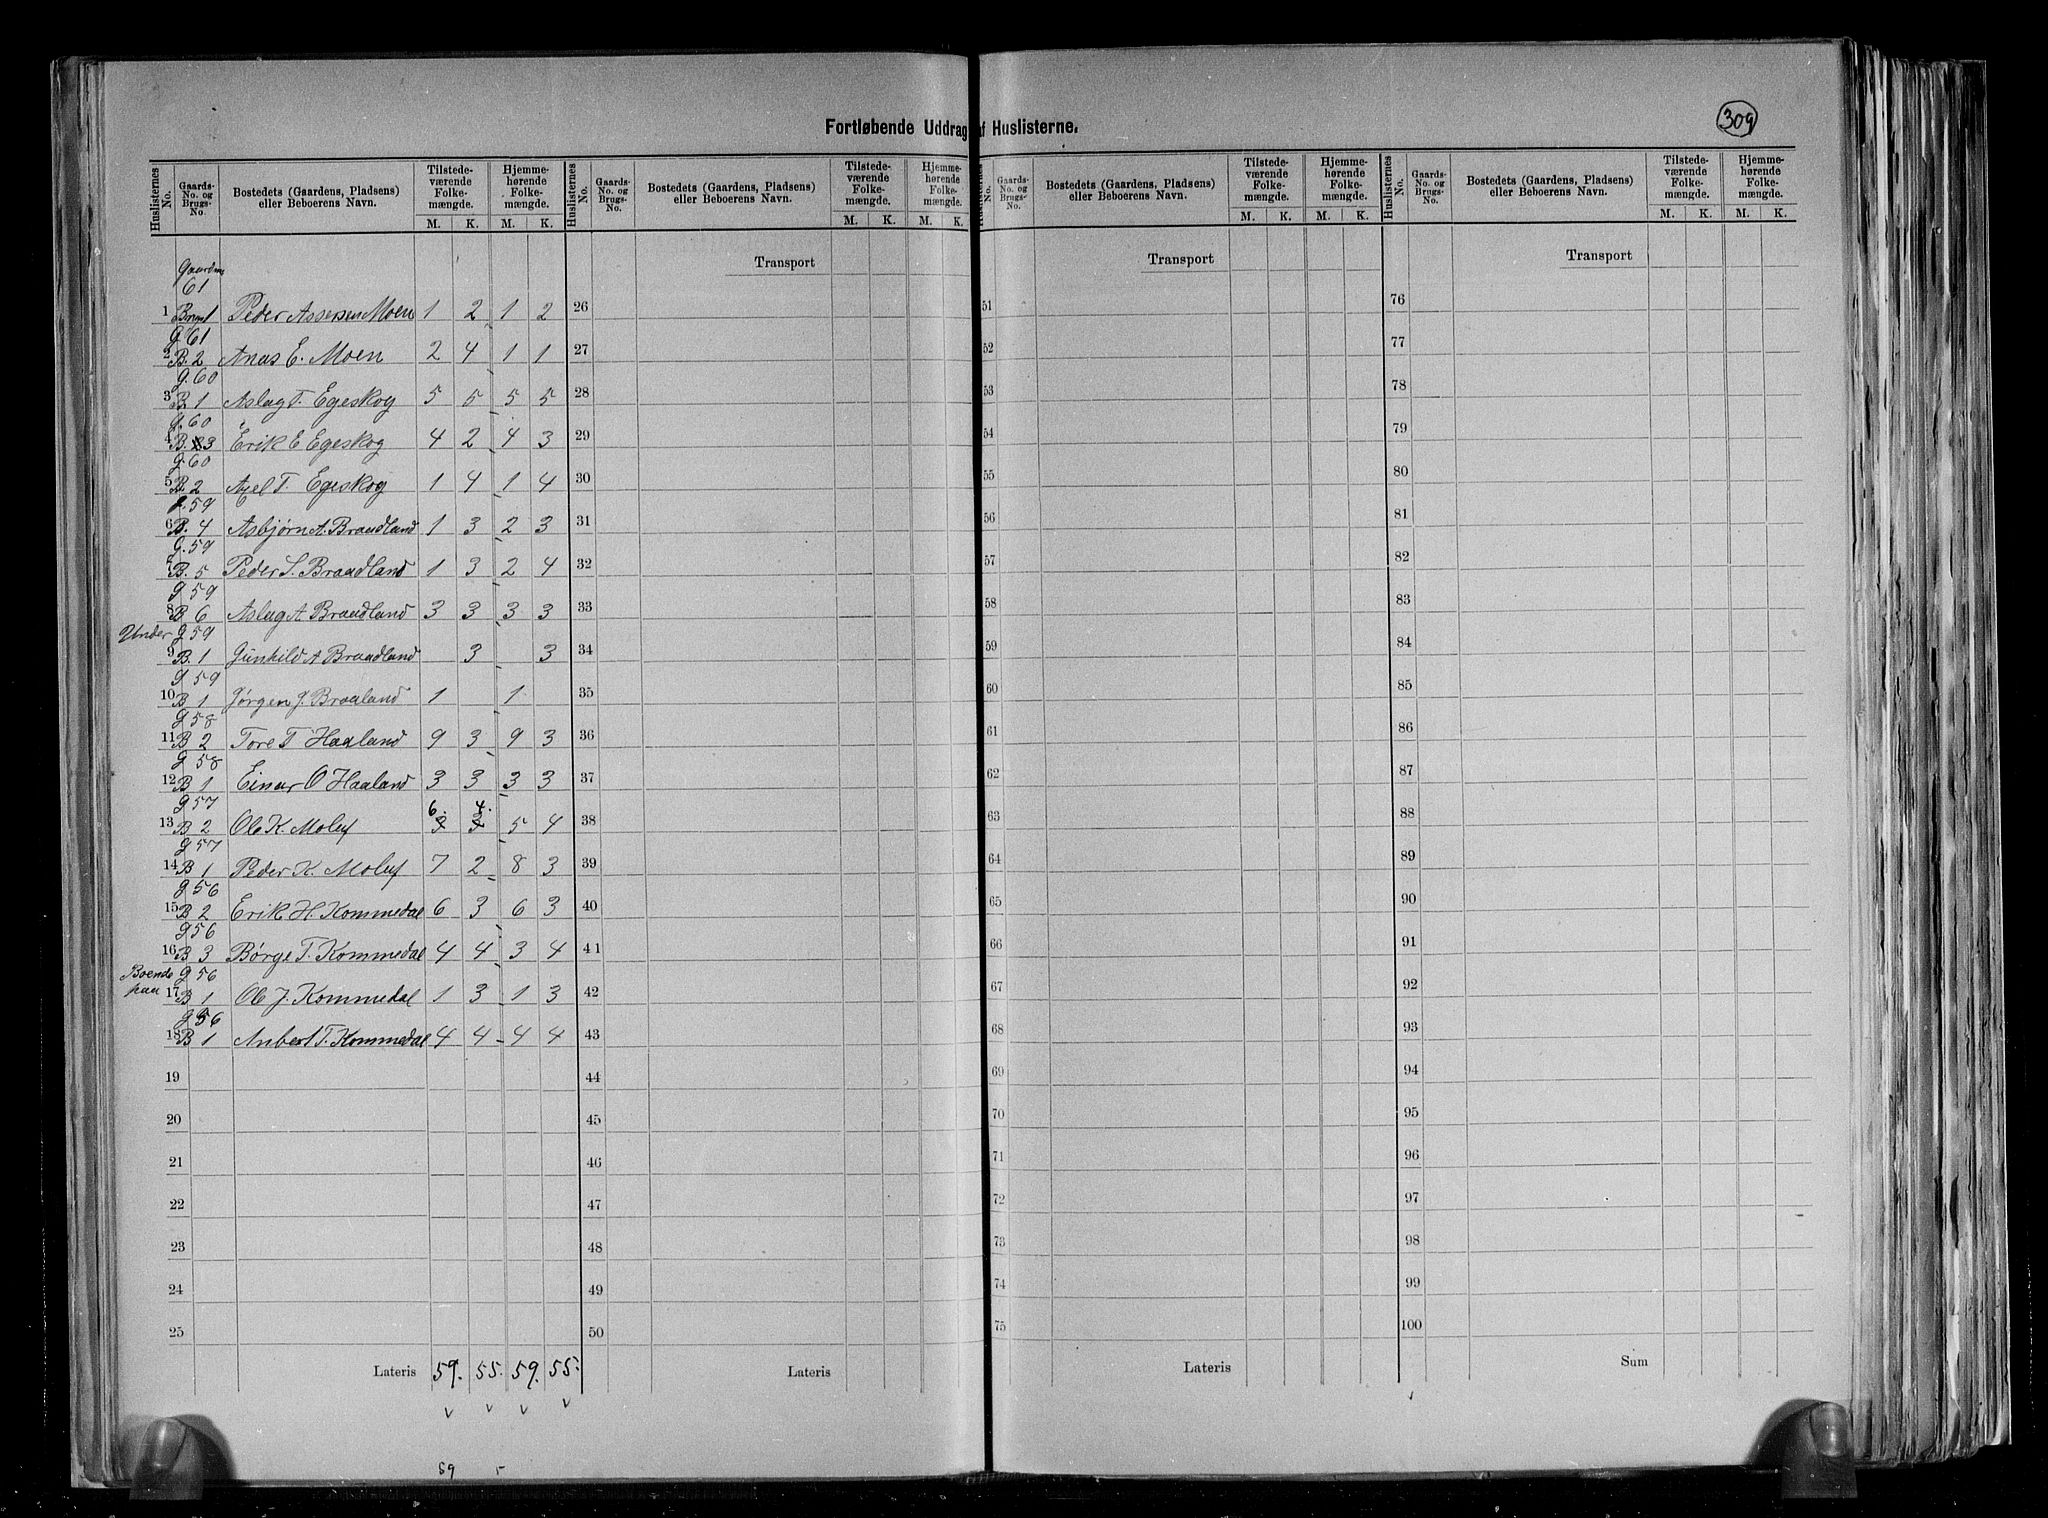 Fortløbende Uddrag af Huslisterne.
309
Huslisternes No. Gaards-No. og Brugs-No. Bostedets (Gaardens, Pladsens) eller Beboerens Navn. Tilstedeværende Folkemængde. M. K. Hjemmehørende Folkemængde. M. K.
Huslisternes No. Gaards-No. og Brugs-No. Bostedets (Gaardens, Pladsens) eller Beboerens Navn. Tilstedeværende Folkemængde. M. K. Hjemmehørende Folkemængde. M. K.
Huslisternes No. Gaards-No. og Brugs-No. Bostedets (Gaardens, Pladsens) eller Beboerens Navn. Tilstedeværende Folkemængde. M. K. Hjemmehørende Folkemængde. M. K.
Huslisternes No. Gaards-No. og Brugs-No. Bostedets (Gaardens, Pladsens) eller Beboerens Navn. Tilstedeværende Folkemængde. M. K. Hjemmehørende Folkemængde. M. K.
61
1 1 Peder Assersen Moen 1 2 1 2
G. 61
2 B. 2 Anas E. Moen 2 4 1 1
G. 60
3 B 1 Aslag T. Egeskog 5 5 5 5
G. 60
4 B. 3 Erik E Egeskog 4 2 4 3
G. 60
5 B. 2 Axel T. Egeskog 1 4 1 4
G. 59
6 B. 4 Asbjørn A. Braadland 1 3 2 3
G. 59
7 B. 5 Peder S. Braadland 1 3 2 4
G 59
8 B 6 Aslag A Braadland 3 3 3 3
Under G 59
9 B. 1 Gunhild A Braadland 3 3
G 59
10 B 1 Jørgen J. Braaland 1 1
G 58
11 B 2 Tore T Haaland 9 3 9 3
G 58
12 B 1 Einar O Haaland 3 3 3 3
G 57
13 B 2 Ole K. Moluf 6 4 5 4
G 57
14 B 1 Peder K. Moluf 7 2 8 3
G 56
15 B 2 Erik H. Kommedal 6 3 6 3
G 56
16 B 3 Børge T. Kommedal 4 4 3 4
Boende paa G 56
17 B 1 Ole J. Kommedal 1 3 1 3
G 56
18 B 1 Anbert T. Kommedal 4 4 4 4
19
20
21
22
23
24
25
Lateris 59. 55. 59. 55.
59
Transport
26
27
28
29
30
31
32
33
34
35
36
37
38
39
40
41
42
43
44
45
46
47
48
49
50
Lateris
Transport
51
52
53
54
55
56
57
58
59
60
61
62
63
64
65
66
67
68
69
70
71
72
73
74
75
Lateris
Transport
76
77
78
79
80
81
82
83
84
85
86
87
88
89
90
91
92
93
94
95
96
97
98
99
100
Sum